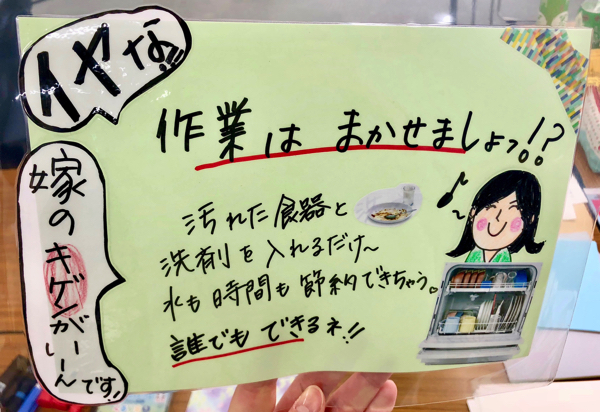 イヤな!!
作業は まかせましょっ!?
嫁のキゲンがいーんです!
汚れた食器と
洗剤を入れるだけ〜
水も時間も節約できちゃう。
誰でもできるネ!!